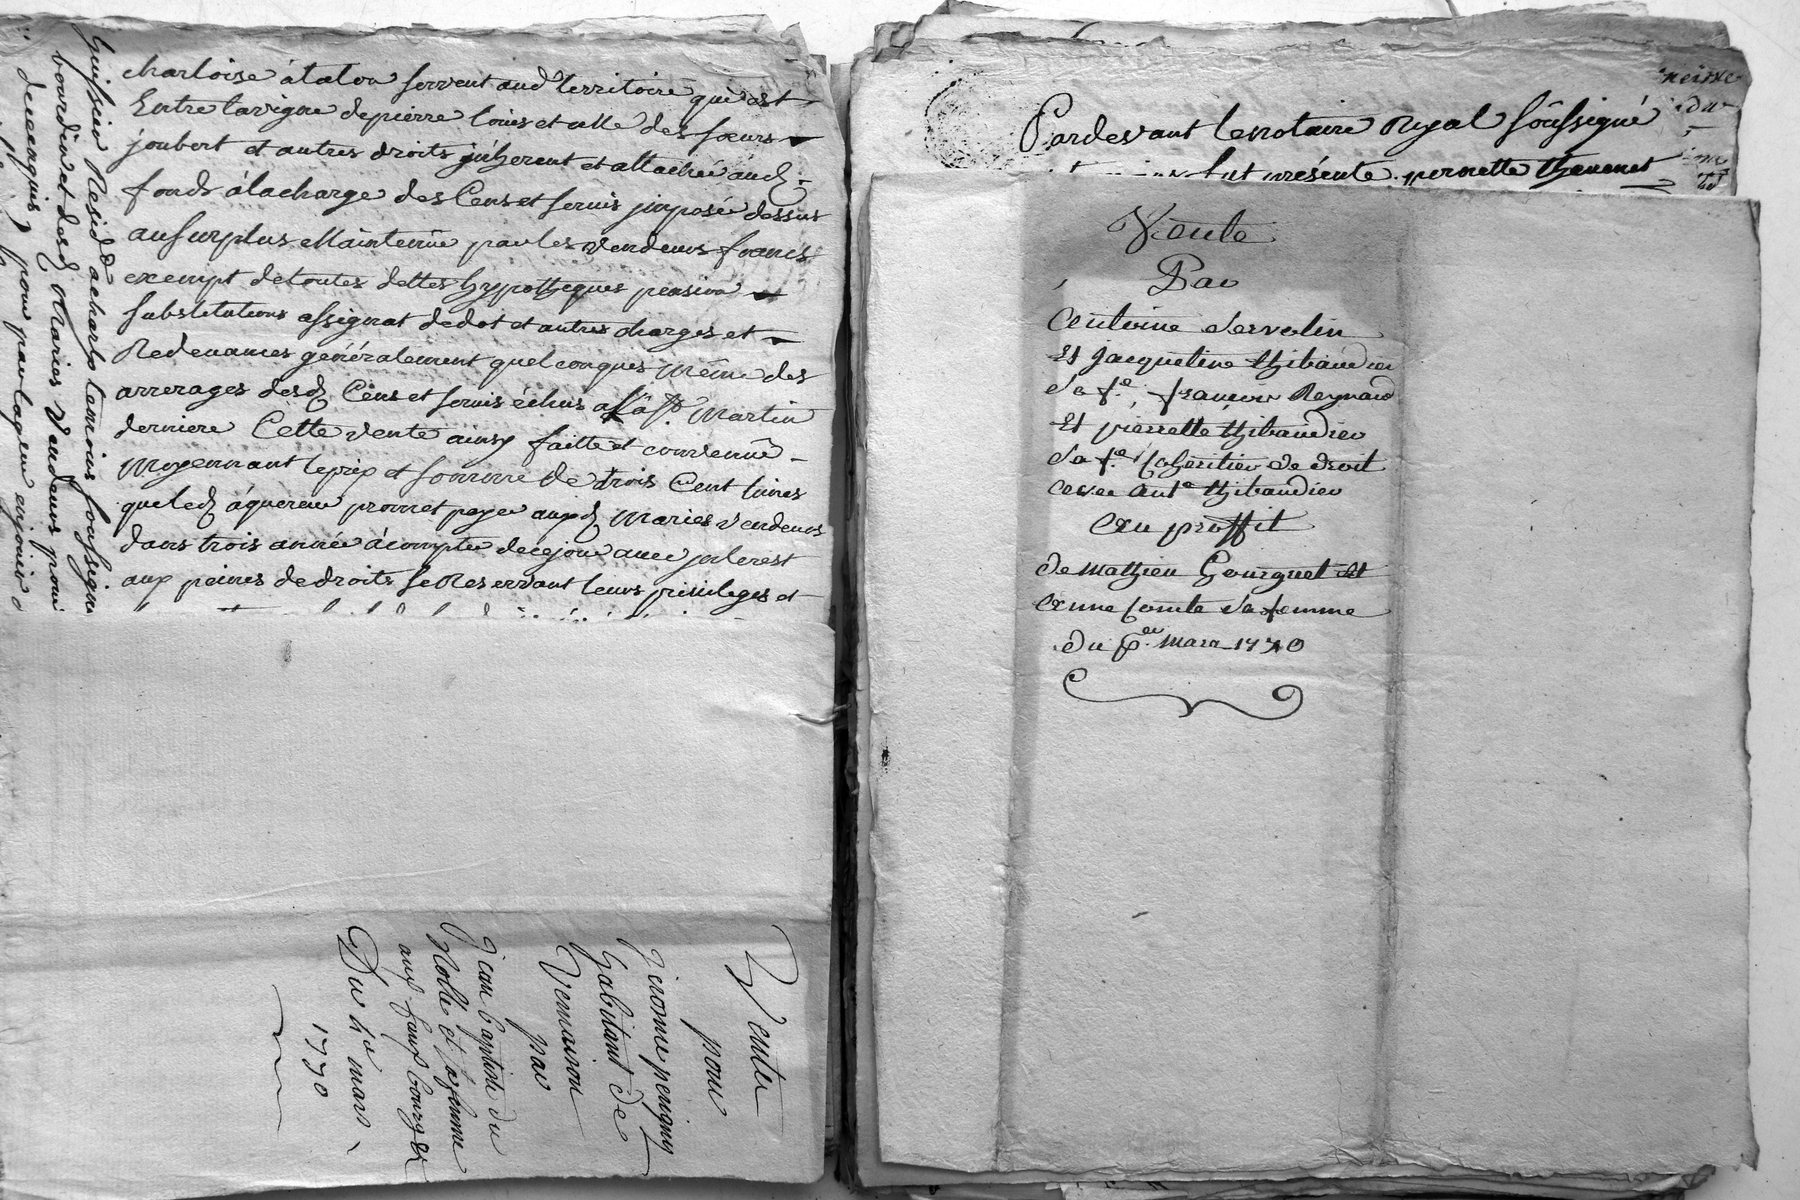 charloise á talon servent aud territoire qui est
Entre la vigne de pierre louis et celle des sœurs
joubert et autres droits jnherent et attachée aud
fonds á la charge des Cens et servis jmposé dessus
au surplus Maintenüe par les vendeurs francs
exempt de toutes dettes hypotheques pension
substitutions assignat de dot et autres charges et
Redevances généralement quelconques même des
arrerages desd Cens et servis échus a la st Martin
derniere Cette vente ainsy faitte et convenüe
Moyennant le prix et somme de trois Cent livres
que led aquereur promet payer auxd Maries vendeurs
dans trois année á compter de ce jour avec jnterest
aux peines de droits se Reservant leurs privileges et
Résidd a charly temoins soussigné
bourdin et lesd Maries Vendeurs pour
de ce enquis
Vente
pour
jerosme perigny
habitant de
Vernaison
par
jean baptiste du
et sa femme
aux faux bourg
Du 4e mars
1770
Pardevant le notaire Royal soussigné
fut présente pernette thevenet
Vente
Par
Antoine Servolin
Et jacqueline thibaudier
Sa fe, francois Reynard
Et pierrette thibaudier
Sa fe Cohéritier de droit
avec ante thibaudier
Au proffit
De mathieu Gourguet Et
Anne Comte Sa femme
Du per mars 1770